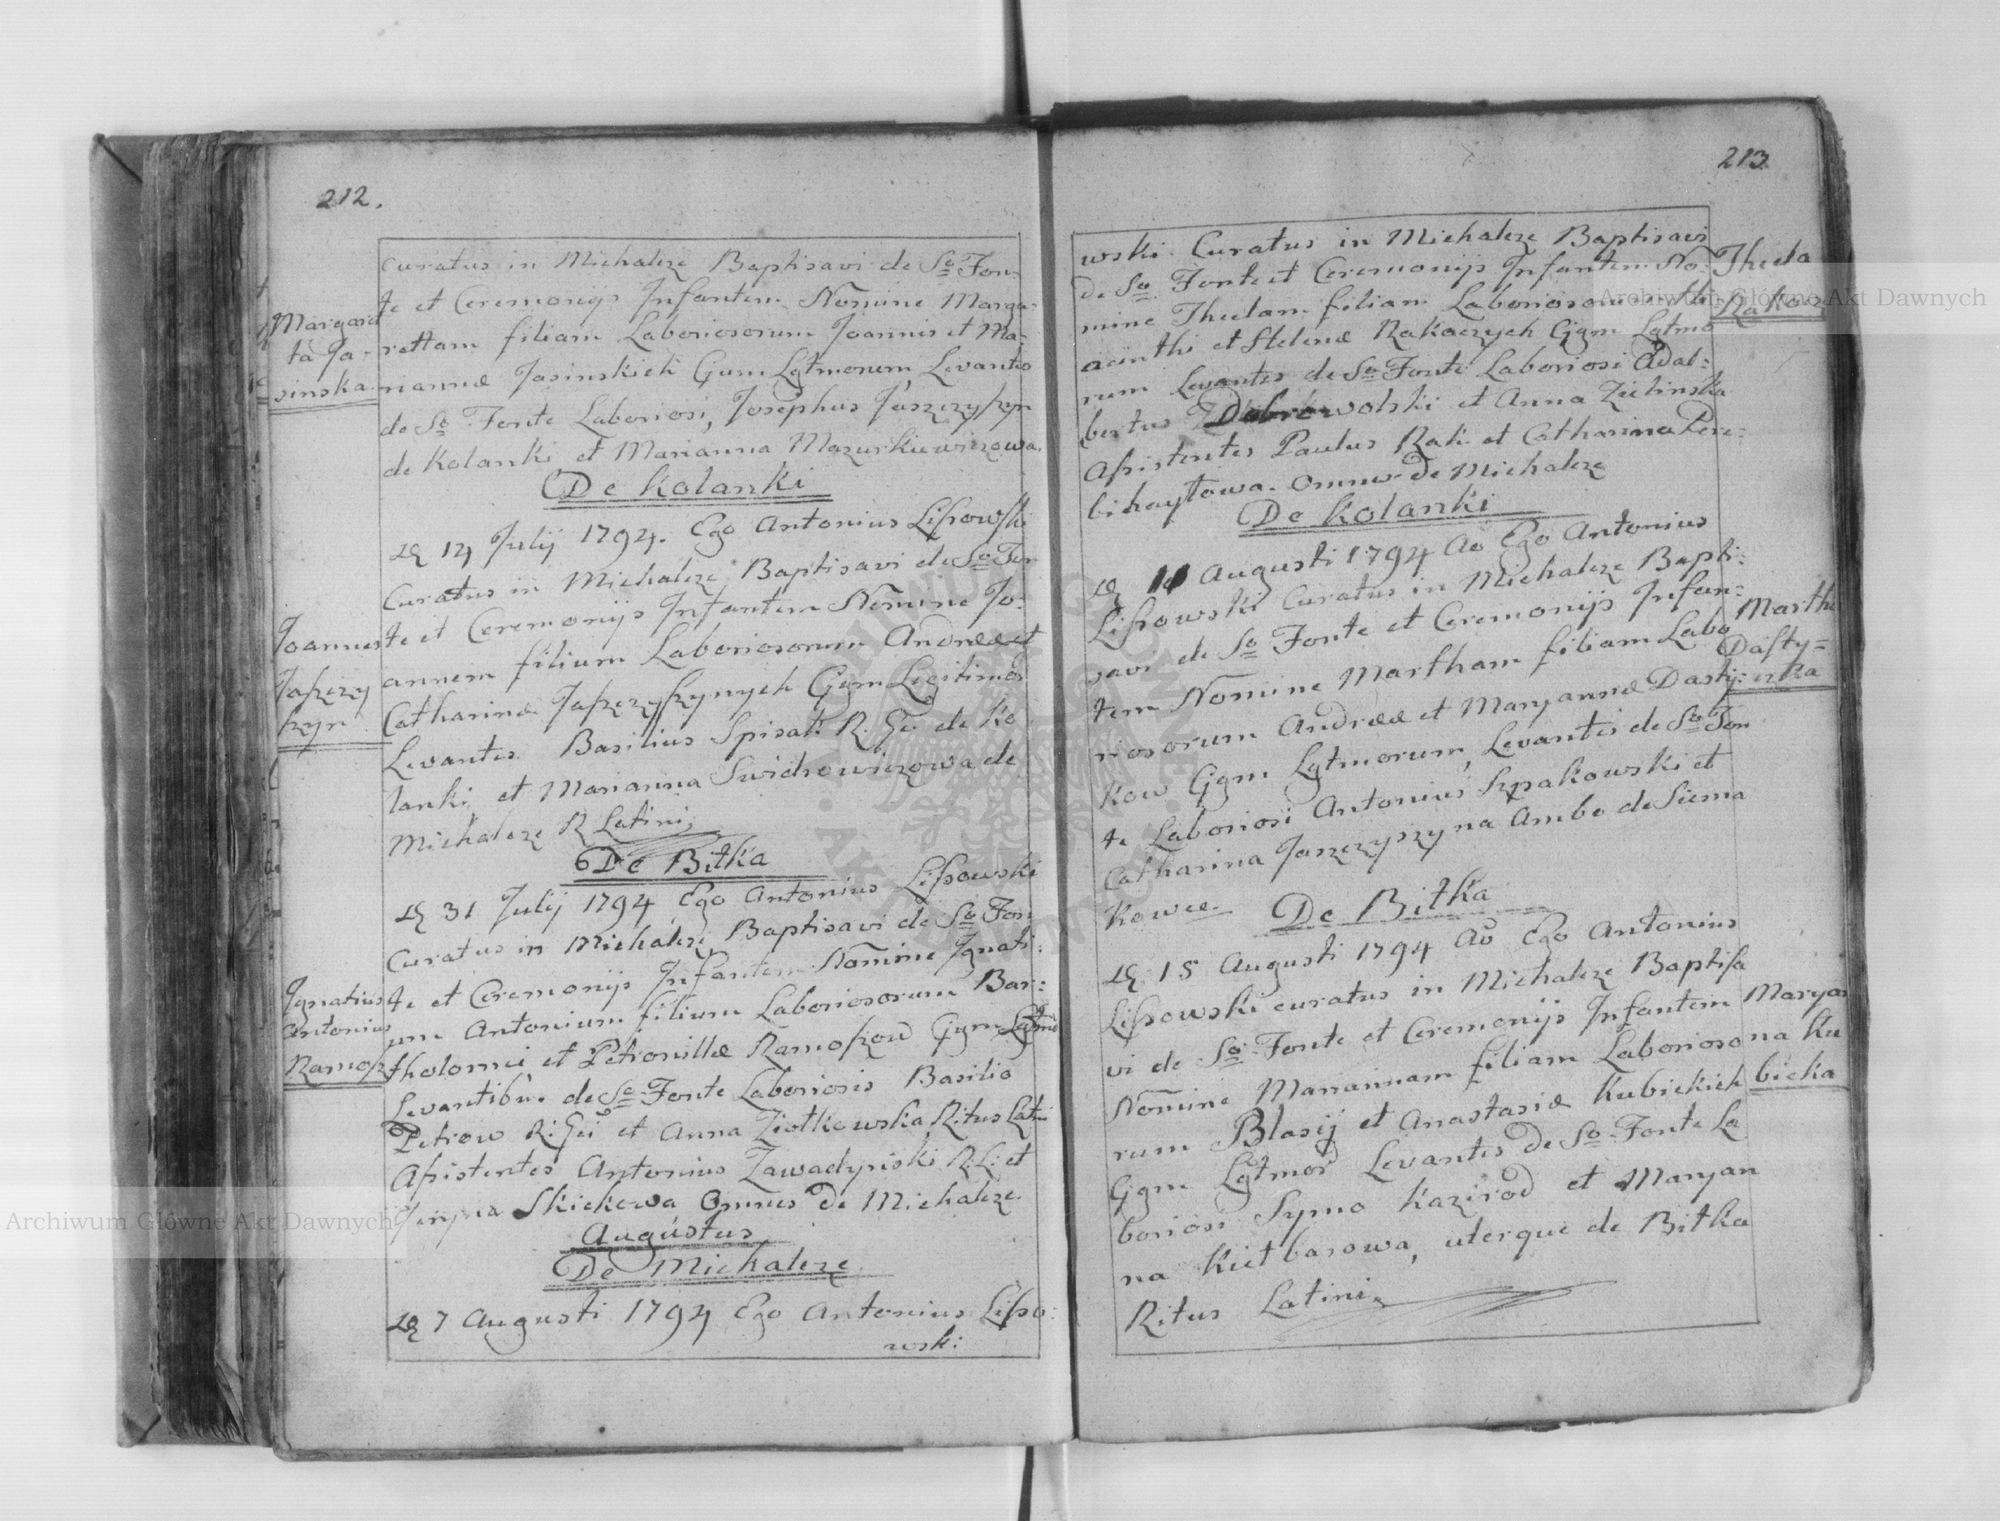 212.
Curatus in Michalcze Baptisavi de So Fon-
te et Ceremonijs Infantem Nomine Marga-
rettam filiam Laboriosorum Joannis et Ma-
riannæ Jasinskich Cjum Lgtmorum, Levantes
de So Fonte Laboriosi, Josephus Jaszczyszyn
de Kolanki et Marianna Mazurkiewiczowa.
Margare
ta Ja-
sinska
De Kolanki
D 14 Julij 1794. Ego Antonius Lissowski
Curatus in Michalcze Baptisavi de So Fon
te et Ceremonijs Infantem Nomine Jo-
annem filium Laboriosorum Andreæ et
Catharinæ Jaszczyszynych Cjum Legitimor
Levantes Basilius Spisak R. Gr de Ko
lanki et Marianna Swichowiczowa de
Michalcze R Latini
Joannes
Jaszczy
szyn
De Bitka
D 31 Julij 1794 Ego Antonius Lissowski
Curatus in Michalcze Baptisavi de So Fon
te et Ceremonijs Infantem Nomine Ignati-
um Antonium filium Laboriosorum Bar-
tholomei et Petronillæ Ramoszow Cjum Lgtmo
Levantibus de So Fonte Laboriosis Basilio
Petrow R. Gr et Anna Ziołkowska Ritus Latni
Assistentes Antonius Zawadynski R. L. et
Skickowa Omnes De Michalcze
Ignatius
Antonius
Ramosz
Augustus
De Michalcze
D 7 Augusti 1794 Ego Antonius Lisso-
wski
213
wski Curatus in Michalcze Baptisavi
de So Fonte et Ceremonijs Infantem No-
mine Theclam filiam Laboriosorum Hi
acinthi et Helenæ Rakoczych Cjgm Lgtmo
rum Levantes de So Fonte Laboriosi Adal-
bertus Dobrowolski et Anna Zielinska
Assistentes Paulus Rak et Catharina Pere-
bihaytowa omnes de Michalcze
Thecla
Rakocz
De Kolanki
D 11 Augusti 1794 Ao Ego Antonius
Lissowski Curatus in Michalcze Bapti-
savi de So Fonte et Ceremonijs Infan-
tem Nomine Martham filiam Labo
riosorum Andreæ et Maryannæ Dasty-
kow Cjgm Lgtmorum, Levantes de So Fon
te Laboriosi Antonius Szpakowski et
Catharina Jaszczyszyna Ambo de Siema
kowce
Martha
Dasty-
uka
De Bitka
D 15 Augusti 1794 Ao Ego Antonius
Lissowski curatus in Michalcze Baptisa
vi de So Fonte et Ceremonijs Infantem
Nomine Mariannam filiam Laborioso
rum Blasij et Anastasiæ Kubickich
Cjgm Lgtmor Levantes de So Fonte La
boriosi Symo Kazirod et Maryan
na Kielbasowa, uterque de Bitka
Ritus Latini
Maryan
na Ku
bicka
Archiwum Główne Akt Dawnych
Archiwum Główne Akt Dawnych